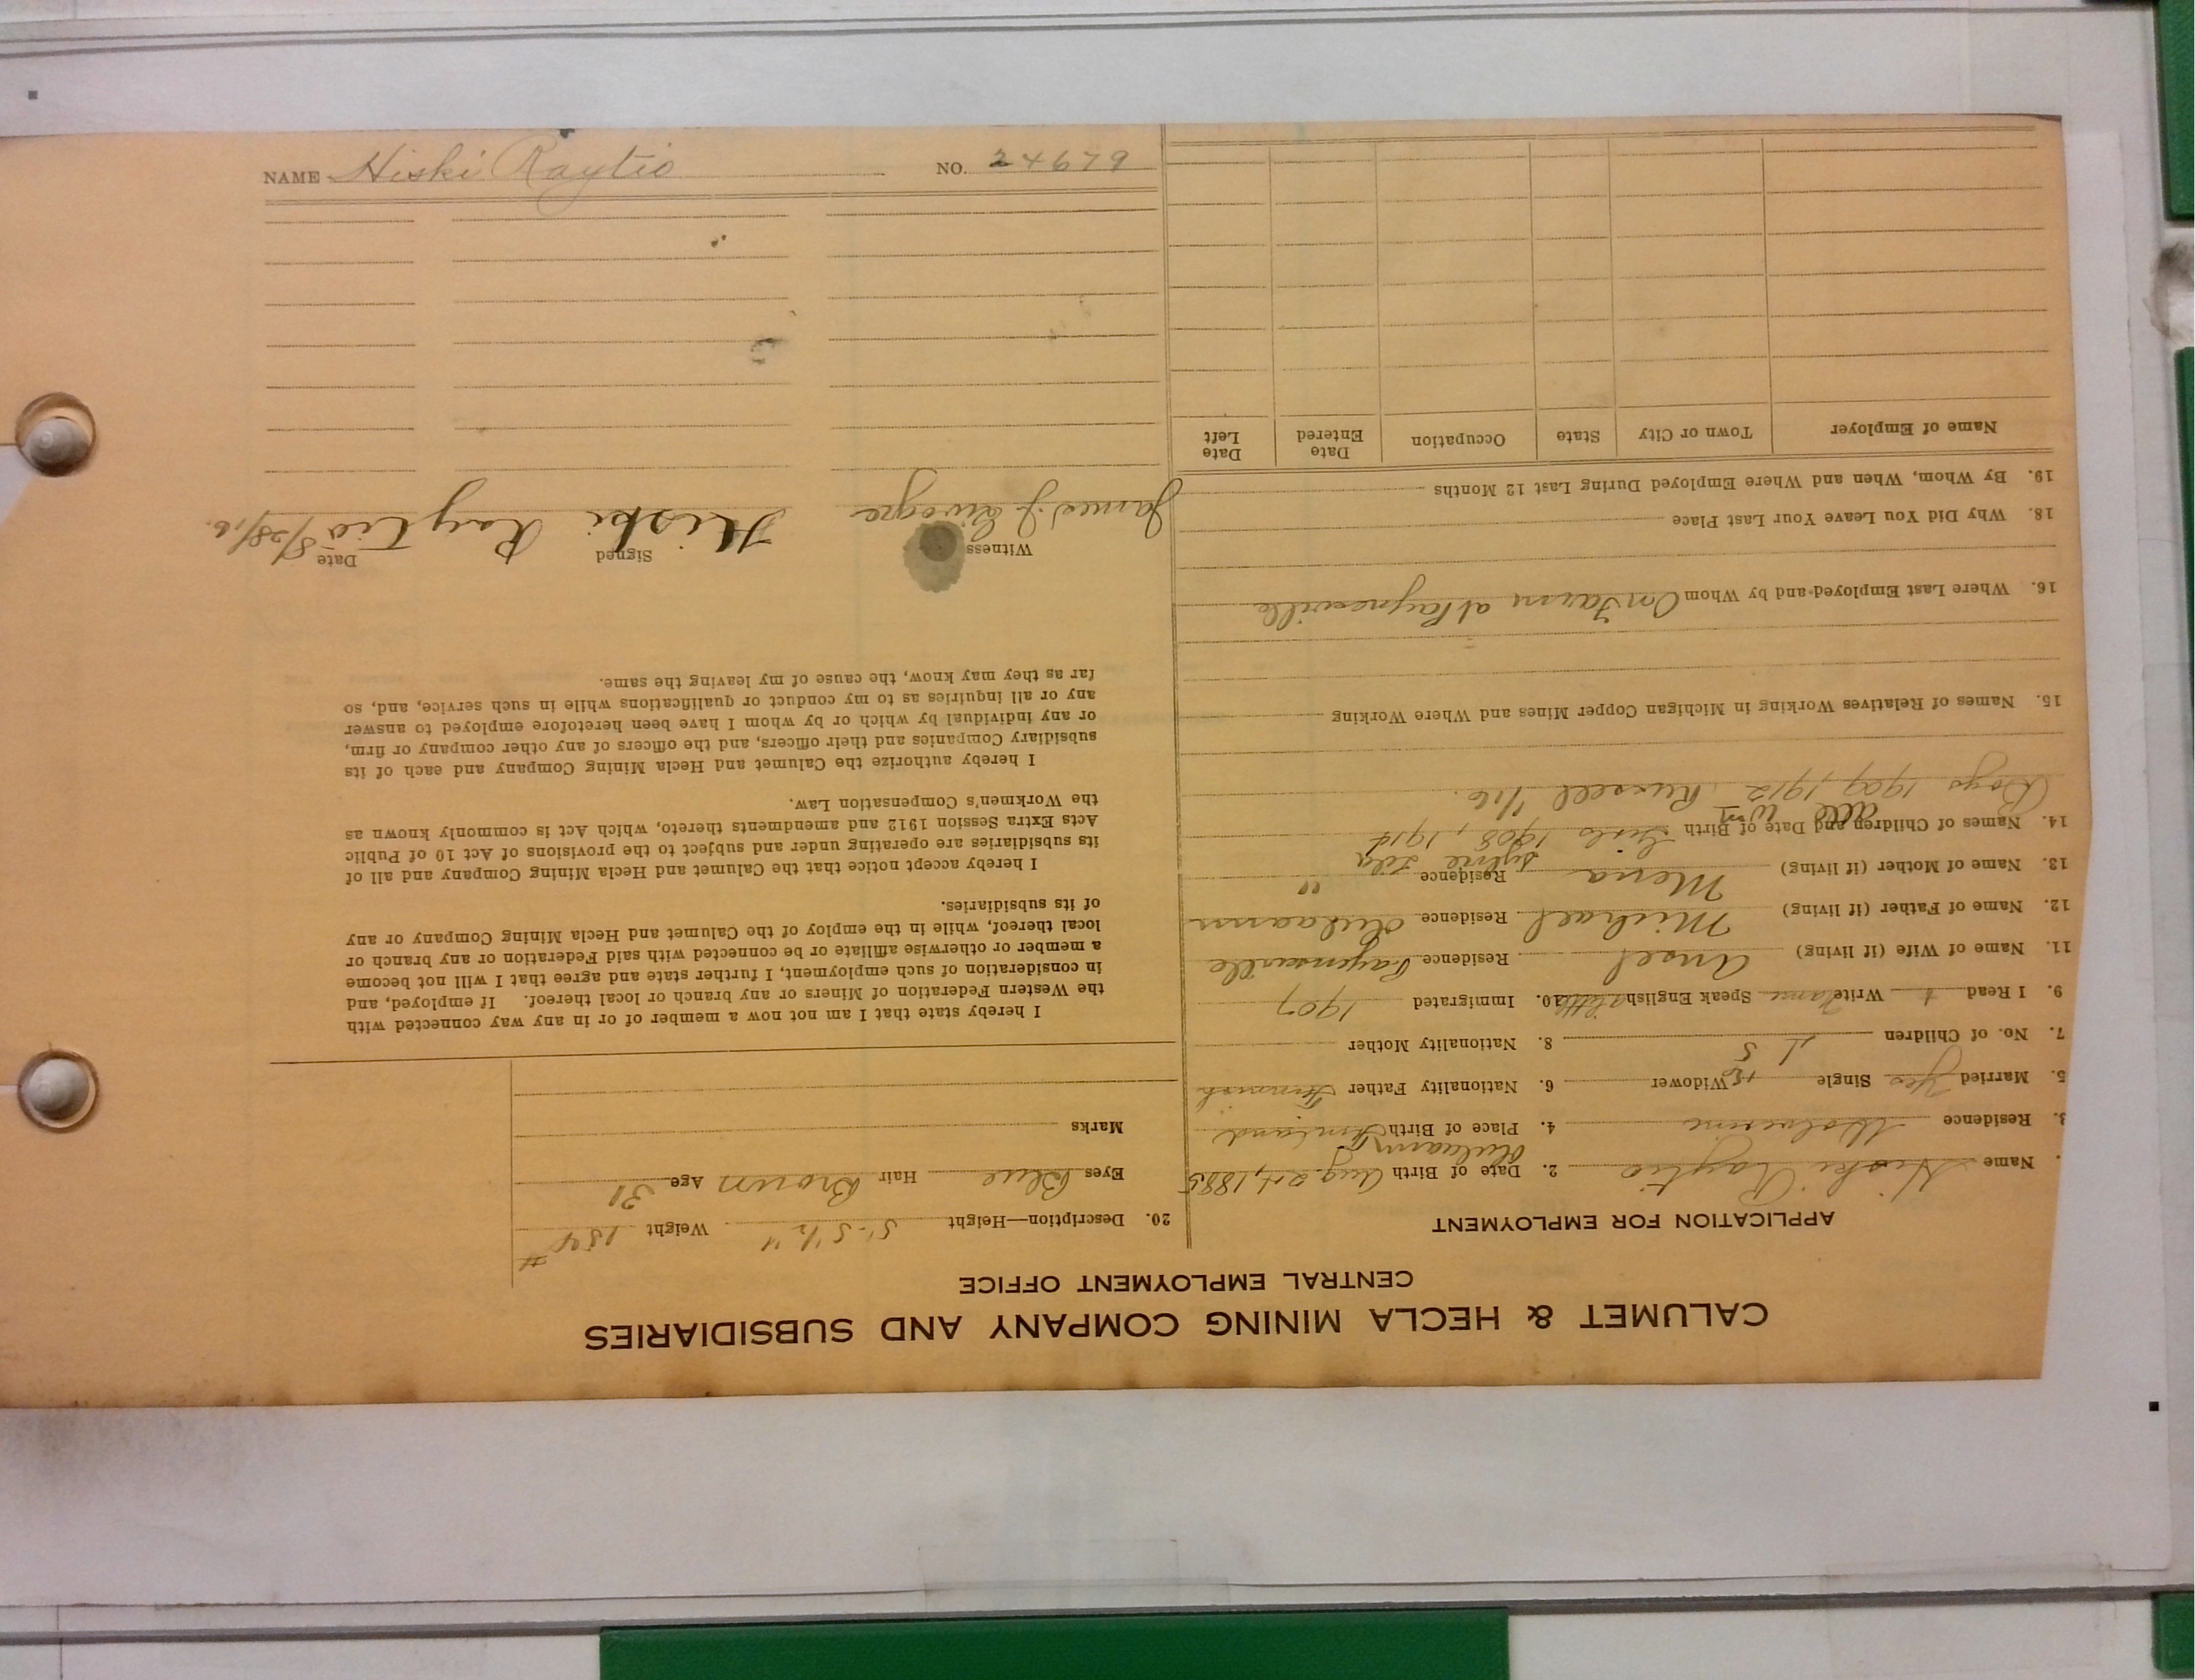 CALUMET & HECLA MINING COMPANY AND SUBSIDIARIES
CENTRAL EMPLOYMENT OFFICE
APPLICATION FOR EMPLOYMENT
Name Hiski Raytio 2. Date of Birth Aug. 24, 1885
3. Residence Wolverine 4. Place of Birth Finland
5. Married Yes Single Widower 6. Nationality Father Finnish
7. No. of Children 5 8. Nationality Mother
9. I Read Write Same Speak English a little 10. Immigrated 1907
11. Name of Wife (if living) Ansel Residence Paynesville
12. Name of Father (if living) Michael Residence
13. Name of Mother (if living) Mena Residence "
14. Names of Children and Date of Birth Girls 1908, 1914
Boys 1909, 1912 Russell 1/16.
15. Names of Relatives Working in Michigan Copper Mines and Where Working
16. Where Last Employed and by Whom On Farm at Paynesville
18. Why Did You Leave Your Last Place
19. By Whom, When and Where Employed During Last 12 Months
Name of Employer Town or City State Occupation Date Entered Date Left
20. Description—Height 5'-5 1/2" Weight 154 #
Eyes Blue Hair Brown Age 31
Marks
I hereby state that I am not now a member of or in any way connected with
the Western Federation of Miners or any branch or local thereof. If employed, and
in consideration of such employment, I further state and agree that I will not become
a member or otherwise affiliate or be connected with said Federation or any branch or
local thereof, while in the employ of the Calumet and Hecla Mining Company or any
of its subsidiaries.
I hereby accept notice that the Calumet and Hecla Mining Company and all of
its subsidiaries are operating under and subject to the provisions of Act 10 of Public
Acts Extra Session 1912 and amendments thereto, which Act is commonly known as
the Workmen's Compensation Law.
I hereby authorize the Calumet and Hecla Mining Company and each of its
subsidiary Companies and their officers, and the officers of any other company or firm,
or any individual by which or by whom I have been heretofore employed to answer
any or all inquiries as to my conduct or qualifications while in such service, and, so
far as they may know, the cause of my leaving the same.
Witness Signed Date
James J. Hiski Raytio 8/28/16.
NAME Hiski Raytio NO. 24679